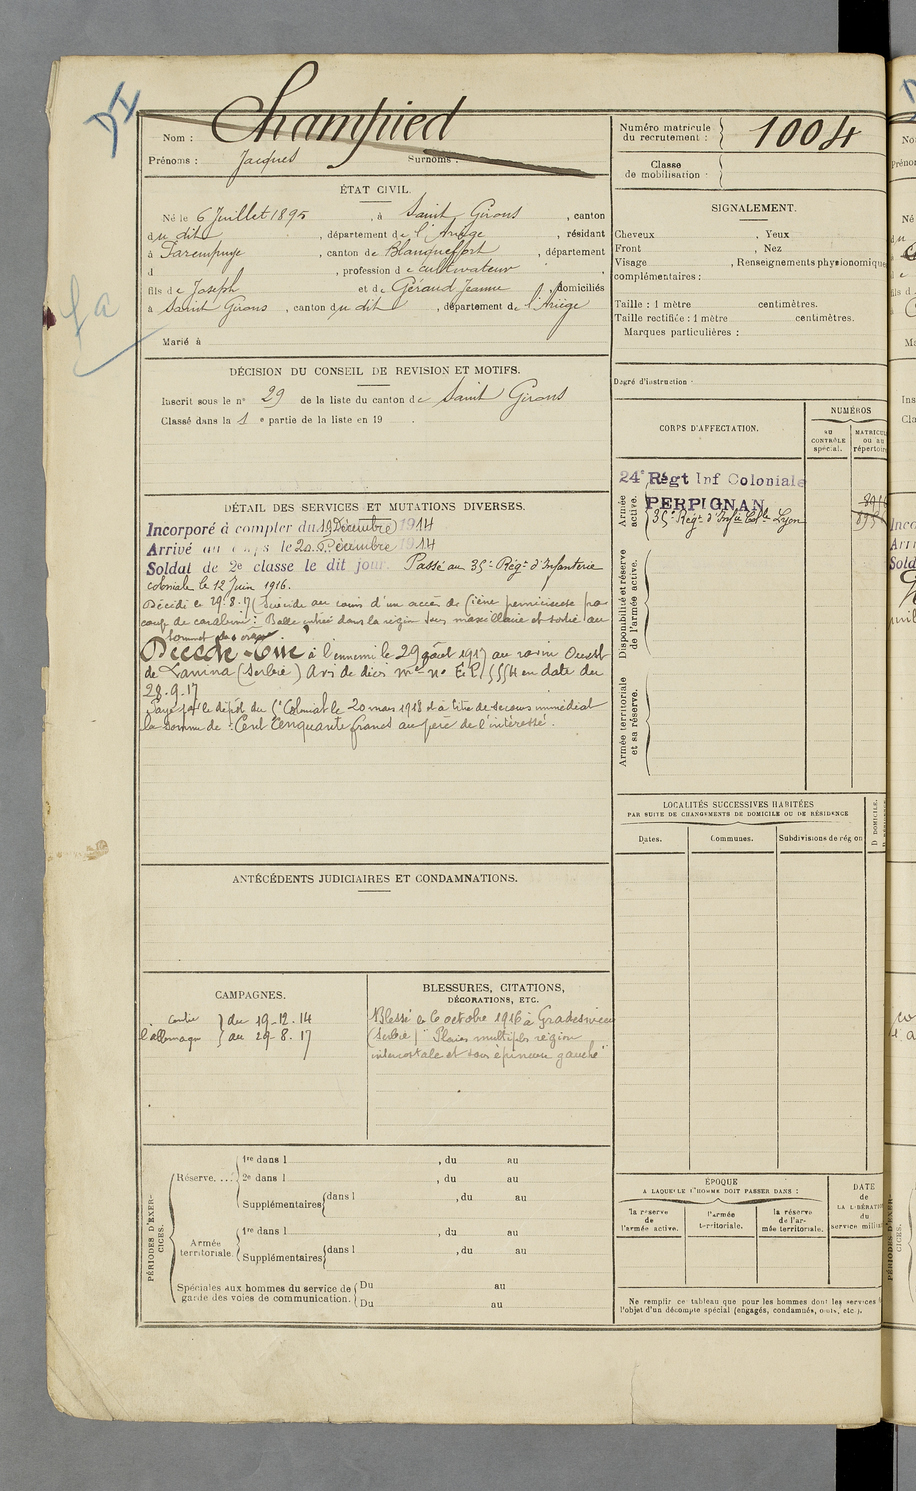 Nom : Champied
Prénoms : Jacques Surnoms :
Numéro matricule du recrutement : 1004
Classe de mobilisation :
ÉTAT CIVIL.
Né le 6 Juillet 1895, à Saint Girons, canton
du dit, département de l'Ariège, résidant
à Parempuyre, canton de Blanquefort, département
d , profession de cultivateur
fils de Joseph et de Géraud Jeanne, domiciliés
à Saint Girons, canton du dit, département de l'Ariège
Marié à
DÉCISION DU CONSEIL DE REVISION ET MOTIFS.
Inscrit sous le n° 29 de la liste du canton de Saint Girons
Classé dans la 1 e partie de la liste en 19 .
DÉTAIL DES SERVICES ET MUTATIONS DIVERSES.
Incorporé à compter du 19 Décembre 1914
Arrivé au corps le 20 Décembre 1914
Soldat de 2e classe le dit jour. Passé au 35e Régt d'Infanterie
coloniale le 12 Juin 1916.
Décédé le 29.8.17 (Suicide au cours d'un accès de fièvre pernicieuse par
coup de carabine : Balle entrée dans la région sous maxillaire et sortie au
sommet du crâne.
à l'ennemi le 29 août 1917 au ravin Ouest
de (Serbie) Avis de décès Mel n° E.R./5554 en date du
28.9.17
Payé par le dépôt du Colonial le 20 mars 1918 et à titre de secours immédiat
la somme de Cent Cinquante francs au père de l'intéressé.
ANTÉCÉDENTS JUDICIAIRES ET CONDAMNATIONS.
CAMPAGNES.
contre } du 19-12.14
l'allemagne } au 29-8.17
BLESSURES, CITATIONS,
DÉCORATIONS, ETC.
Blessé le 6 octobre 1916 à
(Serbie) "Plaies multiples région
intercostale et sous épineuse gauche"
PÉRIODES D'EXERCICES.
Réserve....
1re dans l , du au
2e dans l , du au
Supplémentaires dans l , du au
Armée territoriale.
1re dans l , du au
Supplémentaires dans l , du au
Spéciales aux hommes du service de garde des voies de communication.
Du au
Du au
SIGNALEMENT.
Cheveux , Yeux
Front , Nez
Visage , Renseignements physionomiques
complémentaires :
Taille : 1 mètre centimètres.
Taille rectifiée : 1 mètre centimètres.
Marques particulières :
Degré d'instruction
CORPS D'AFFECTATION.
NUMÉROS
AU CONTRÔLE spécial.
MATRICULE ou au répertoire
Armée active.
24e Régt Inf Coloniale
PERPIGNAN
35e Régt d'Infie Colle Lyon
Disponibilité et réserve de l'armée active.
Armée territoriale et sa réserve.
LOCALITÉS SUCCESSIVES HABITÉES
PAR SUITE DE CHANGEMENTS DE DOMICILE OU DE RÉSIDENCE
Dates. Communes. Subdivisions de région
ÉPOQUE
A LAQUELLE L'HOMME DOIT PASSER DANS :
la réserve de l'armée active.
l'armée territoriale.
la réserve de l'armée territoriale.
DATE de LA LIBÉRATION du service militaire
Ne remplir ce tableau que pour les hommes dont les services
l'objet d'un décompte spécial (engagés, condamnés, omis, etc.).